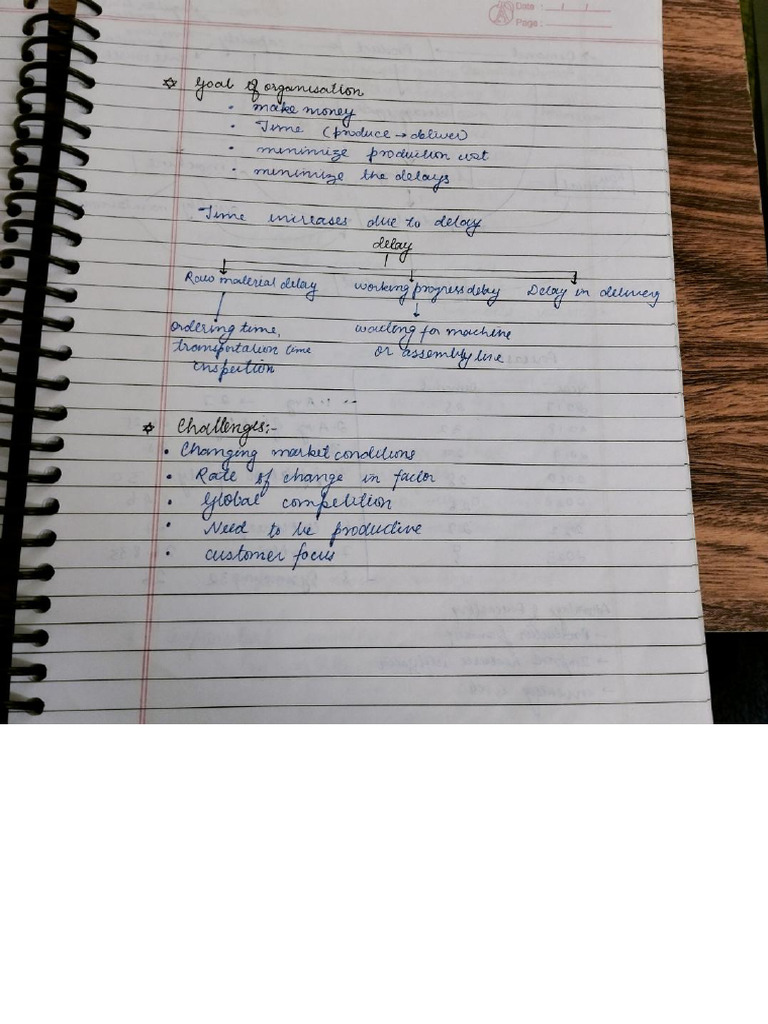 Date : / /
Page :
☆ Goal of organisation
• make money
• Time (produce → deliver)
• minimize production cost
• minimize the delays
Time increases due to delay
delay
Raw material delay working progress delay Delay in delivery
ordering time, waiting for machine
transportation time or assembly line
inspection
☆ Challenges:-
• Changing market conditions
• Rate of change in factor
• Global competition
• Need to be productive
• customer focus